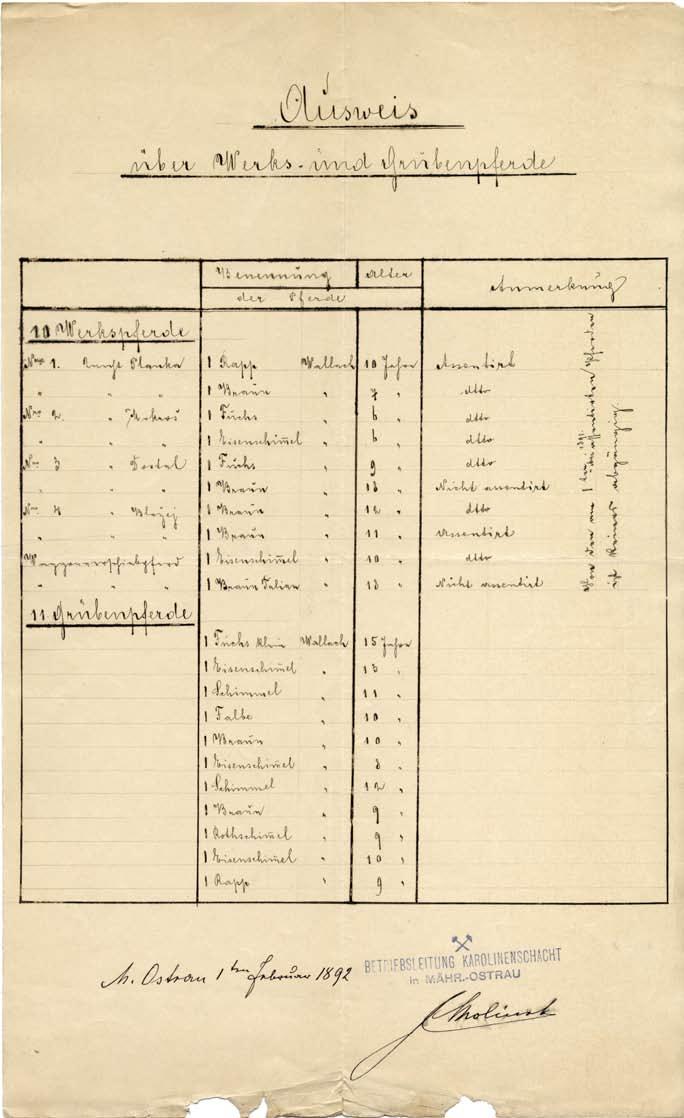 Ausweis
über Werks- und Grubenpferde
Benennung Alter Anmerkung
der Pferde
10 Werkspferde
Nro 1. Planka 1 Rapp Wallach 10 Jahre Assentirt
" " " 1 Braun " 7 " dtto
Nro 2. " 1 Fuchs " 6 " dtto
" " " 1 Eisenschim̄el " 6 " dtto
Nro 3 " Dostal 1 Fuchs " 9 " dtto
" " " 1 Braun " " Nicht assentirt
Nro 4 " Blazej 1 Braun " 12 " dtto
" " " 1 Braun " 11 " Assentirt
1 Eisenschim̄el " 10 " dtto
" " " 1 Braun " " Nicht assentirt
11 Grubenpferde
1 Fuchs klein Wallach 15 Jahre
1 Eisenschim̄el " 13 "
1 Schimmel " 11 "
1 Falbe " 10 "
1 Braun " 10 "
1 Eisenschim̄el " 8 "
1 Schimmel " 12 "
1 Braun " 9 "
1 Rothschim̄el " 9 "
1 Eisenschim̄el " 10 "
1 Rapp " 9 "
M. Ostrau 1ten Februar 1892
BETRIEBSLEITUNG KAROLINENSCHACHT
in MÄHR.-OSTRAU